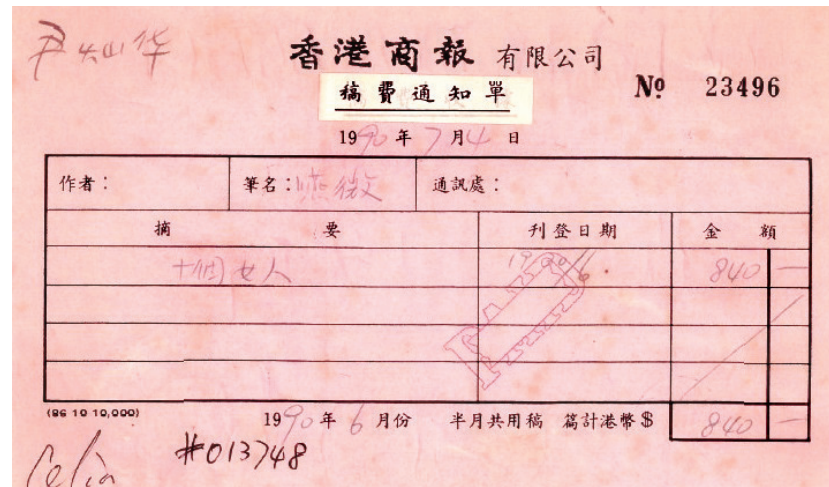 香港商報 有限公司
稿費通知單
№ 23496
1990年7月4日
作者： 筆名： 通訊處：
摘要 刊登日期 金額
十個女人 1990/6 840 —
PAID
(86 10 10,000)
1990年6月份 半月共用稿 篇計港幣$ 840 —
#013748
Celia